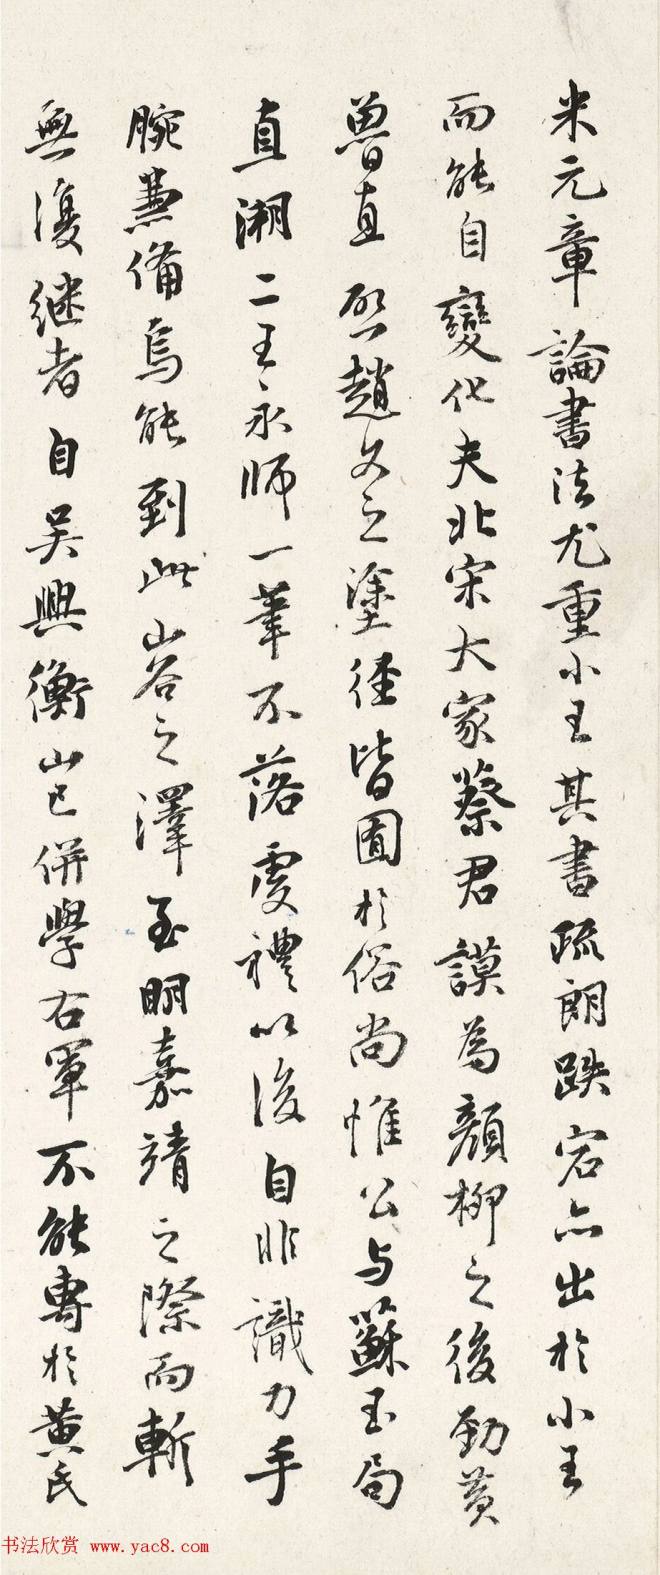 米元章論書法尤重小王其書疏朗跌宕亦出於小王
而能自變化夫北宋大家蔡君謨為顏柳之後勁黃
魯直啓趙文之塗徑皆囿於俗尚惟公与蘇玉局
直溯二王永師一筆不落虞禮以後自非識力手
腕兼備烏能到此山谷之澤至明嘉靖之際而斬
無復继者自吴興衡山已併學右軍不能專於黄氏
书法欣赏 www.yac8.com